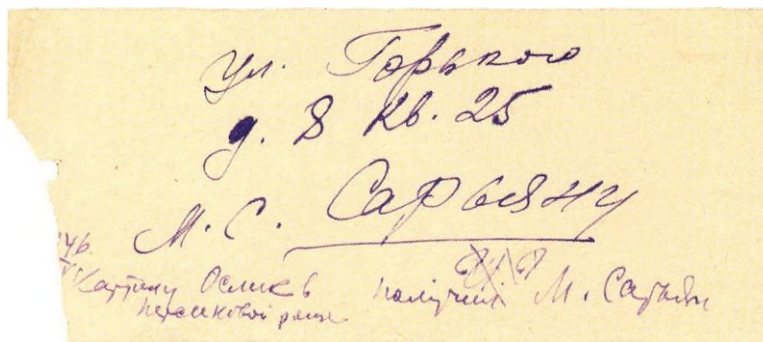 ул. Горького
д. 8 кв. 25
М. С. Сарьяну
46.
Картину Ослик в получил М. Сарьян
персиковой роще